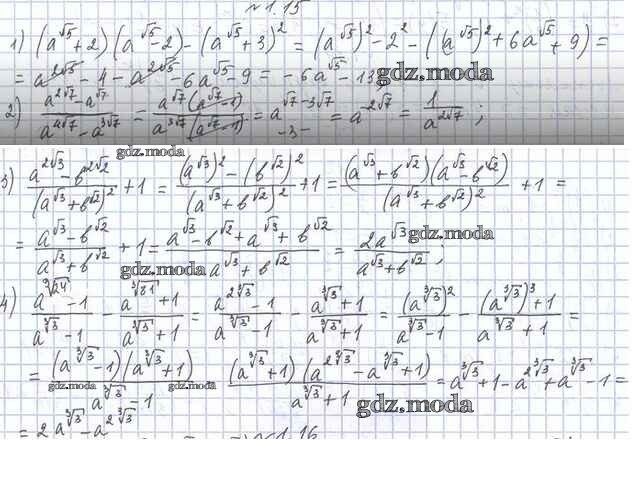 №1.15
1) (a^√5 + 2)(a^√5 − 2) − (a^√5 + 3)² = (a^√5)² − 2² − ((a^√5)² + 6a^√5 + 9) =
= a^2√5 − 4 − a^2√5 − 6a^√5 − 9 = −6a^√5 − 13;
gdz.moda
2) (a^2√7 − a^√7)/(a^4√7 − a^3√7) = (a^√7(a^√7 − 1))/(a^3√7(a^√7 − 1)) = a^√7−3√7 = a^−2√7 = 1/a^2√7 ;
−3−
gdz.moda
3) (a^2√3 − b^2√2)/(a^√3 + b^√2)² + 1 = ((a^√3)² − (b^√2)²)/(a^√3 + b^√2)² + 1 = ((a^√3 + b^√2)(a^√3 − b^√2))/(a^√3 + b^√2)² + 1 =
= (a^√3 − b^√2)/(a^√3 + b^√2) + 1 = (a^√3 − b^√2 + a^√3 + b^√2)/(a^√3 + b^√2) = 2a^√3/(a^√3 + b^√2) ;
gdz.moda
gdz.moda
4) (a^∛24 − 1)/(a^∛3 − 1) − (a^∛81 + 1)/(a^∛3 + 1) = (a^2∛3 − 1)/(a^∛3 − 1) − (a^∛3 + 1)/(a^∛3 + 1) = (a^∛3)² − 1/(a^∛3 − 1) − ((a^∛3)³ + 1)/(a^∛3 + 1) =
= ((a^∛3 − 1)(a^∛3 + 1))/(a^∛3 − 1) (a^∛3 + 1)(a^2∛3 − a^∛3 + 1)/(a^∛3 + 1) = a^∛3 + 1 − a^2∛3 + a^∛3 − 1 =
gdz.moda gdz.moda
gdz.moda
= 2a^∛3 − a^2∛3
№1.16